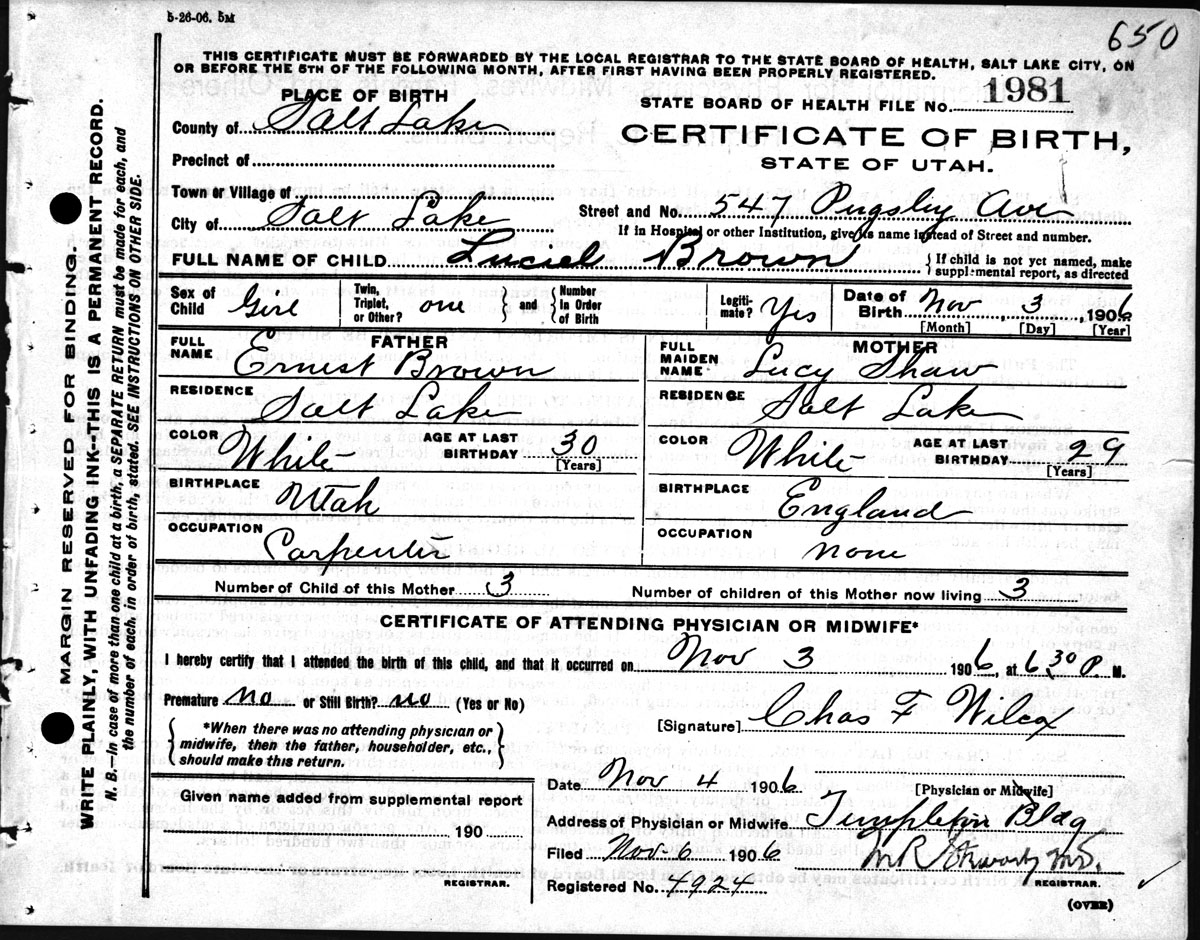 5-26-06. 5M
650
THIS CERTIFICATE MUST BE FORWARDED BY THE LOCAL REGISTRAR TO THE STATE BOARD OF HEALTH, SALT LAKE CITY, ON
OR BEFORE THE 5TH OF THE FOLLOWING MONTH, AFTER FIRST HAVING BEEN PROPERLY REGISTERED.
PLACE OF BIRTH
STATE BOARD OF HEALTH FILE NO. 1981
County of Salt Lake
CERTIFICATE OF BIRTH,
STATE OF UTAH.
Precinct of
Town or Village of
City of Salt Lake
Street and No. 547 Pugsley Ave
If in Hospital or other Institution, give its name instead of Street and number.
FULL NAME OF CHILD Luciel Brown
If child is not yet named, make
supplemental report, as directed
Sex of Child Girl
Twin, Triplet, and or Other? one
Number in Order of Birth
Legitimate? Yes
Date of Birth Nov, 3, 1906
[Month] [Day] [Year]
FATHER
FULL NAME Ernest Brown
RESIDENCE Salt Lake
COLOR White
AGE AT LAST BIRTHDAY 30
[Years]
BIRTHPLACE Utah
OCCUPATION Carpenter
MOTHER
FULL MAIDEN NAME Lucy Shaw
RESIDENCE Salt Lake
COLOR White
AGE AT LAST BIRTHDAY 29
[Years]
BIRTHPLACE England
OCCUPATION none
Number of Child of this Mother 3
Number of children of this Mother now living 3
CERTIFICATE OF ATTENDING PHYSICIAN OR MIDWIFE*
I hereby certify that I attended the birth of this child, and that it occurred on Nov 3 1906, at 6 30 P. M.
Premature no or Still Birth? no (Yes or No)
[Signature] Chas F Wilcox
*When there was no attending physician or
midwife, then the father, householder, etc.,
should make this return.
Date Nov 4 1906
[Physician or Midwife]
Given name added from supplemental report
190
REGISTRAR.
Address of Physician or Midwife Templeton Bldg
Filed Nov 6 1906
M R Stewart M.D.
REGISTRAR.
Registered No. 4924
(OVER)
MARGIN RESERVED FOR BINDING.
WRITE PLAINLY, WITH UNFADING INK--THIS IS A PERMANENT RECORD.
N. B.--In case of more than one child at a birth, a SEPARATE RETURN must be made for each, and
the number of each, in order of birth, stated. SEE INSTRUCTIONS ON OTHER SIDE.